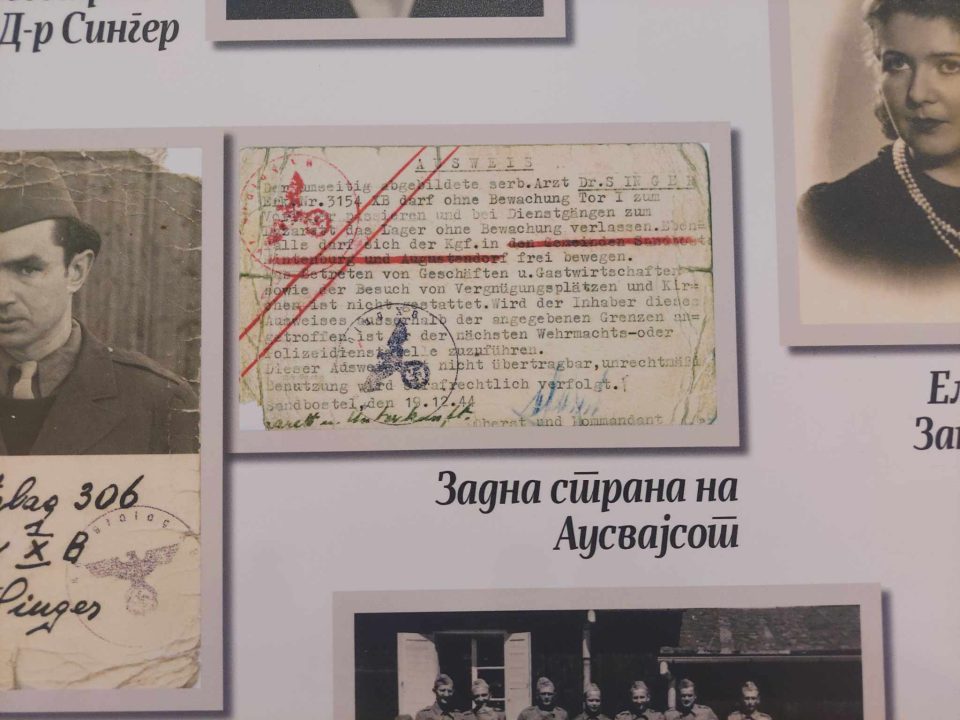 Д-р Сингер
AUSWEIS
Der umseitig abgebildete serb.Arzt Dr.SINGER
Erk.Nr.3154 XB darf ohne Bewachung Tor I zum
passieren und bei Dienstgängen zum
das Lager ohne Bewachung verlassen.Eben=
falls darf sich der Kgf.in den Gemeinden Sandbostel
und Augustendorf frei bewegen.
Das Betreten von Geschäften u.Gastwirtschaften
sowie der Besuch von Vergnügungsplätzen und Kir=
chen ist nicht gestattet.Wird der Inhaber dieses
Ausweises ausserhalb der angegebenen Grenzen an=
getroffen,ist er der nächsten Wehrmachts-oder
Polizeidienststelle zuzuführen.
Dieser Ausweis ist nicht übertragbar,unrechtmäß
Benutzung wird strafrechtlich verfolgt.
Sandbostel,den 19.12.44
Oberst und Kommandant
306
X B
Singer
Задна страна на
Аусвајсот
Ел
За